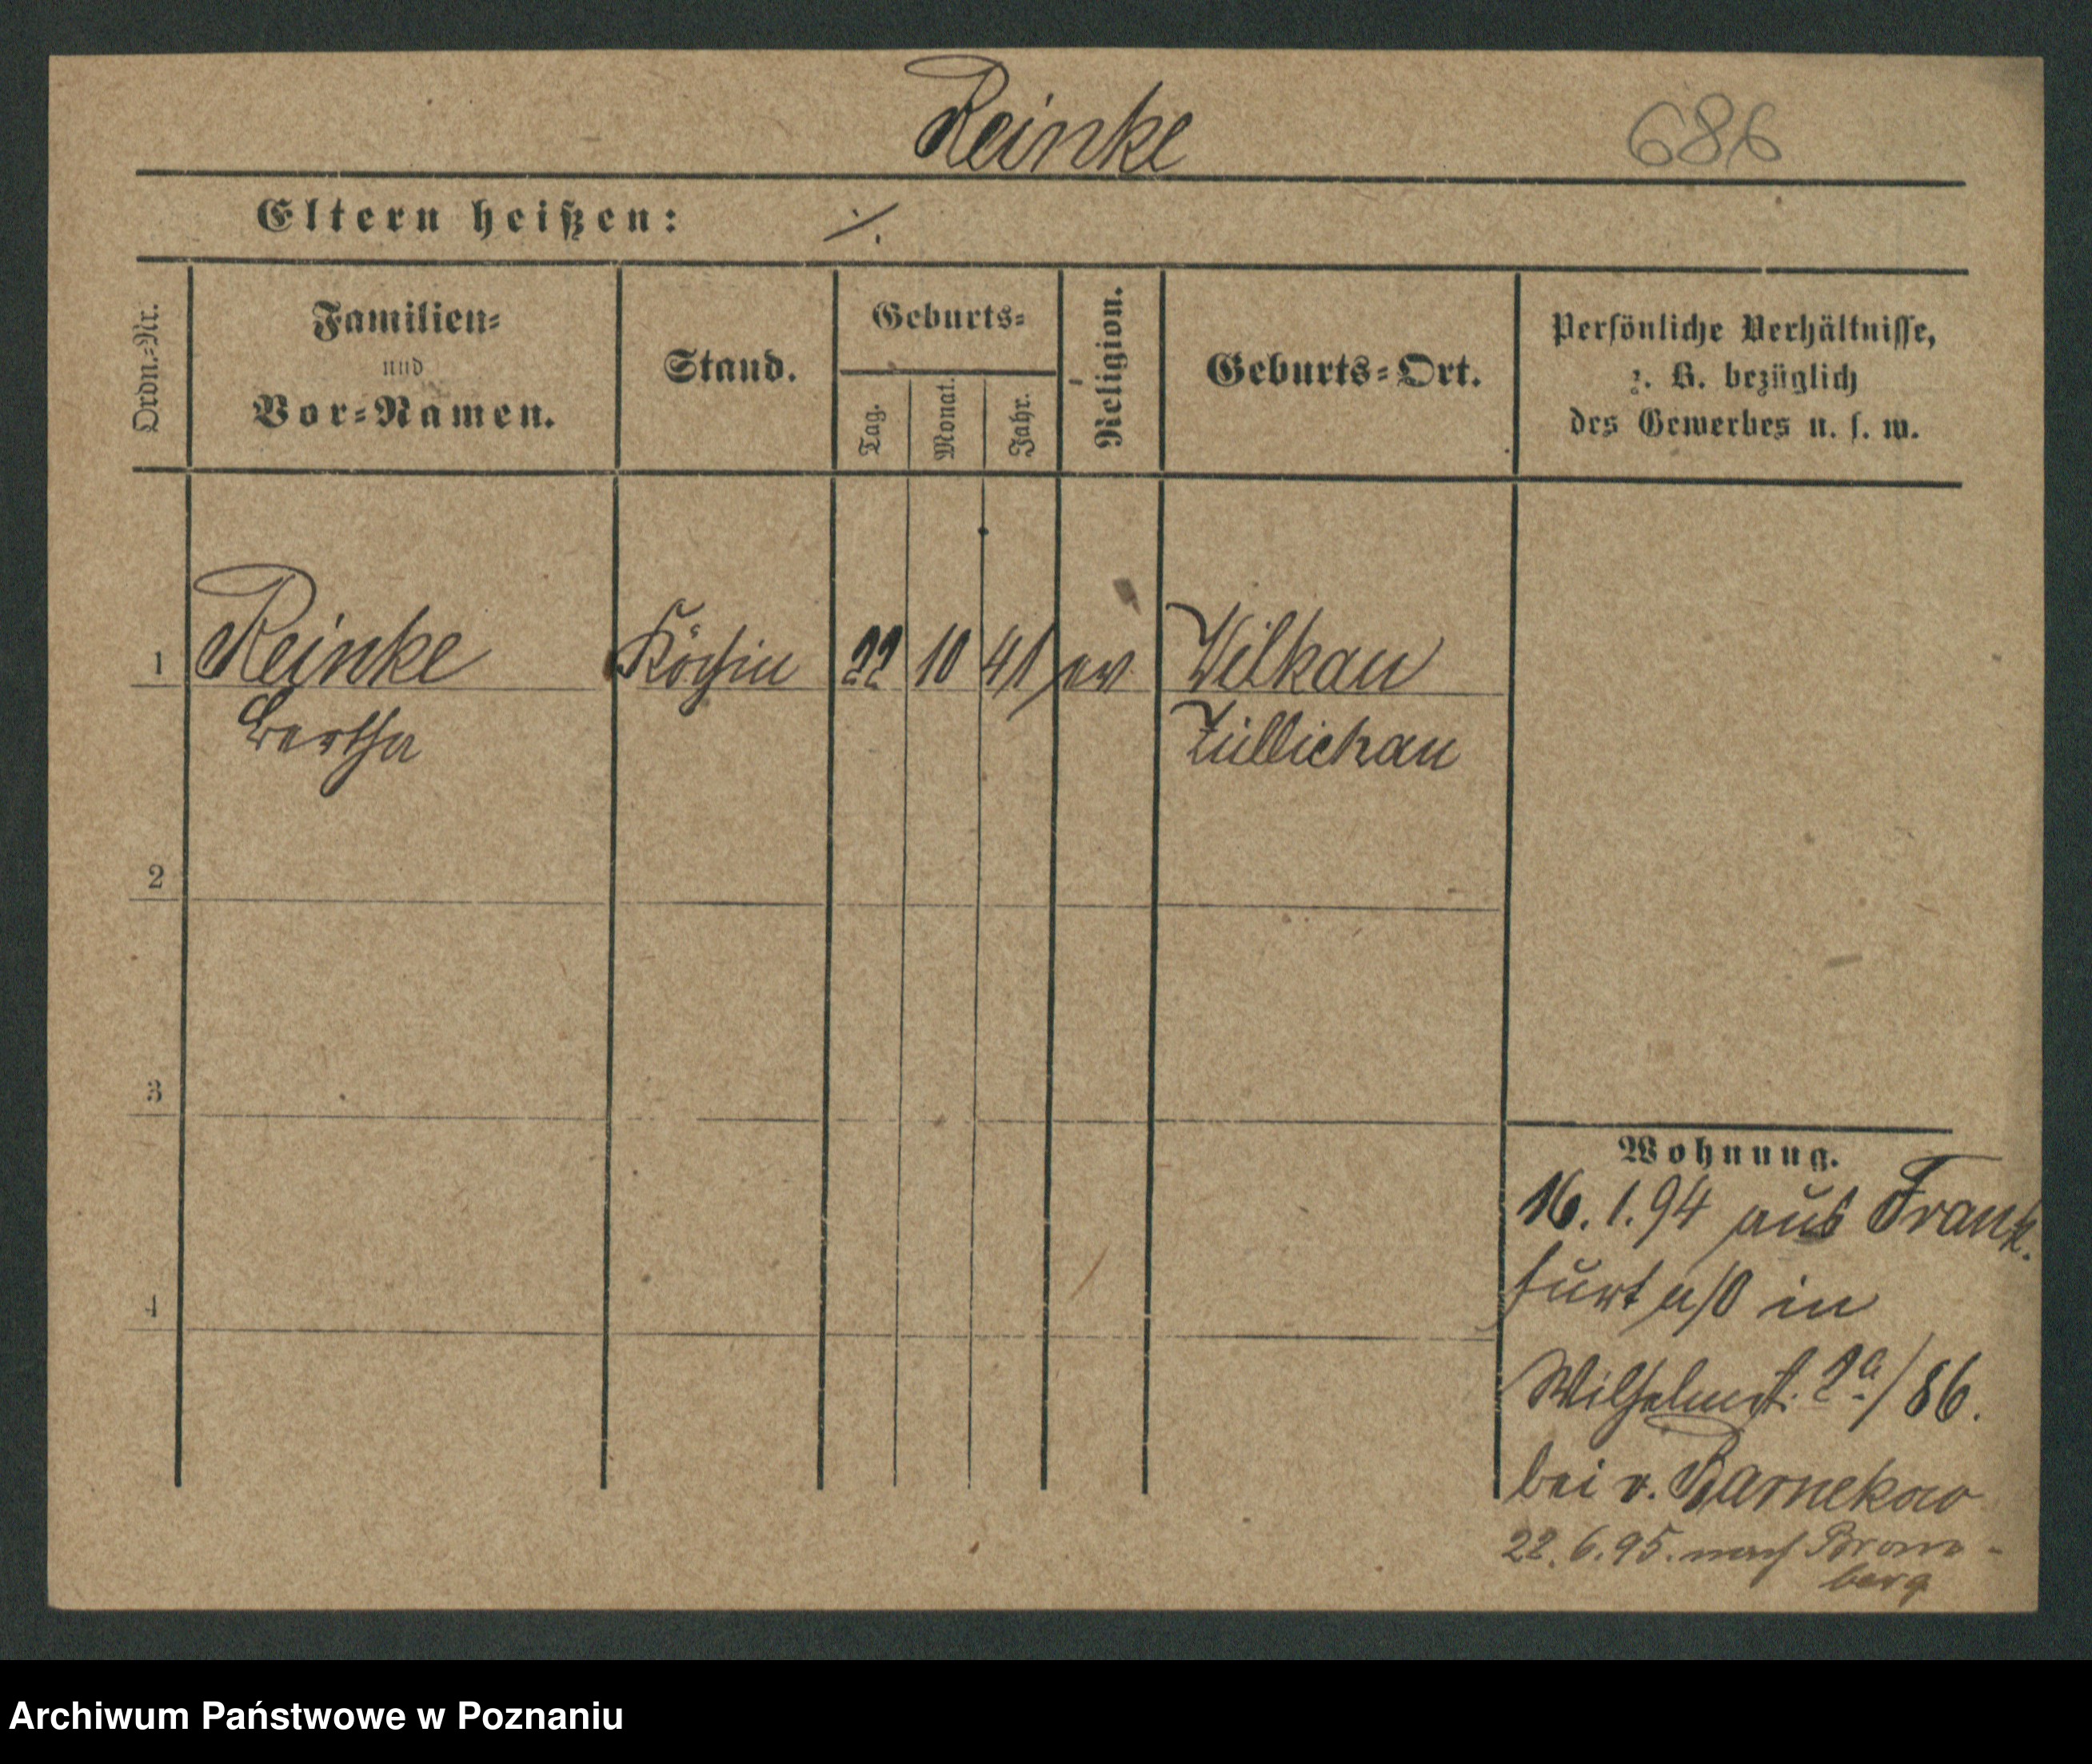 Reinke
686
Eltern heißen: ∕.
Ordn.-Nr.
Familien-
und
Vor-Namen.
Stand.
Geburts-
Tag.
Monat.
Jahr.
Religion.
Geburts-Ort.
Persönliche Verhältnisse,
z. B. bezüglich
des Gewerbes u. s. w.
1 Reinke Köchin 22 10 41 ev Wilkau
Bertha Züllichau
2
3
4
Wohnung.
16. 1. 94 aus Frank.
furt a/O in
Wilhelmst. 2a/86.
bei v. Barnekow
22. 6. 95. nach Brom-
berg
Archiwum Państwowe w Poznaniu